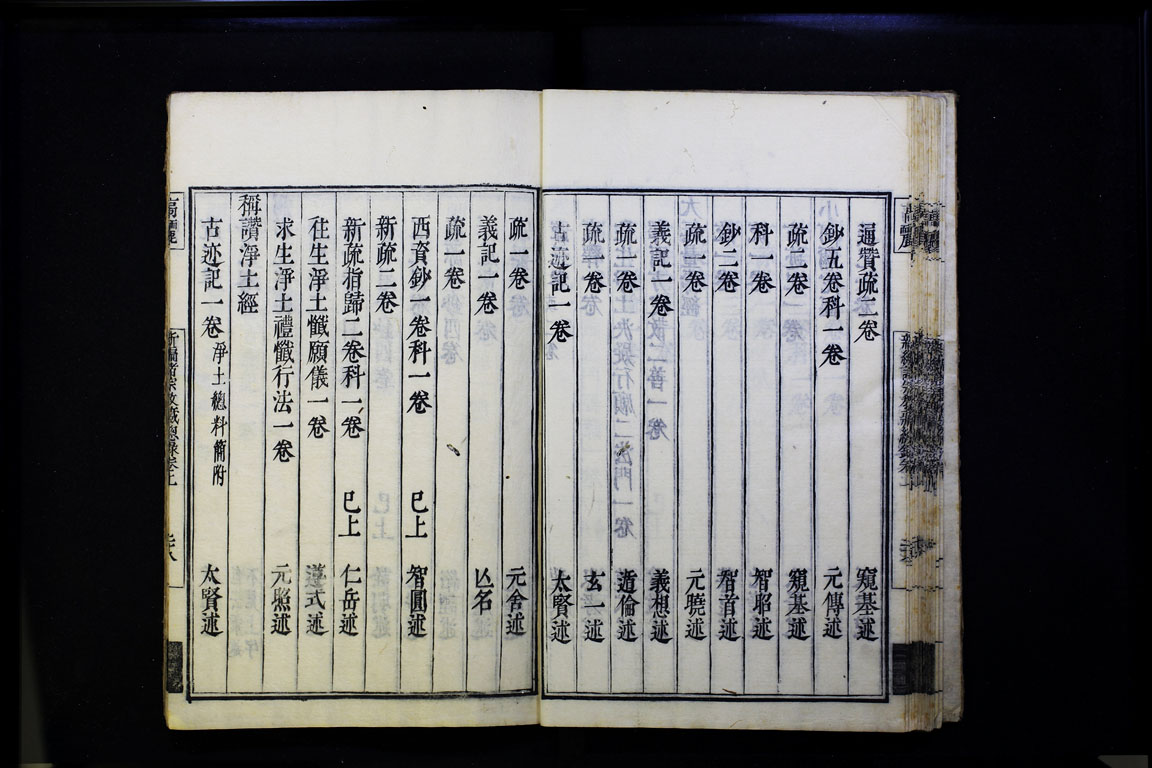 通贊疏二卷 窺基述
鈔五卷科一卷 元傳述
疏二卷 窺基述
科一卷 智昭述
鈔二卷 智首述
疏一卷 元曉述
義記一卷 義想述
疏一卷 道倫述
疏一卷 玄一述
古迹記一卷 太賢述
疏一卷 元舍述
義記一卷 亾名
疏一卷
西資鈔一卷科一卷 已上 智圓述
新疏二卷
新疏指歸二卷科一卷 已上 仁岳述
往生淨土懺願儀一卷 遵式述
求生淨土禮懺行法一卷 元照述
稱讚淨土經
古迹記一卷 淨土總料簡附 太賢述
高麗
新編諸宗教藏總錄卷上